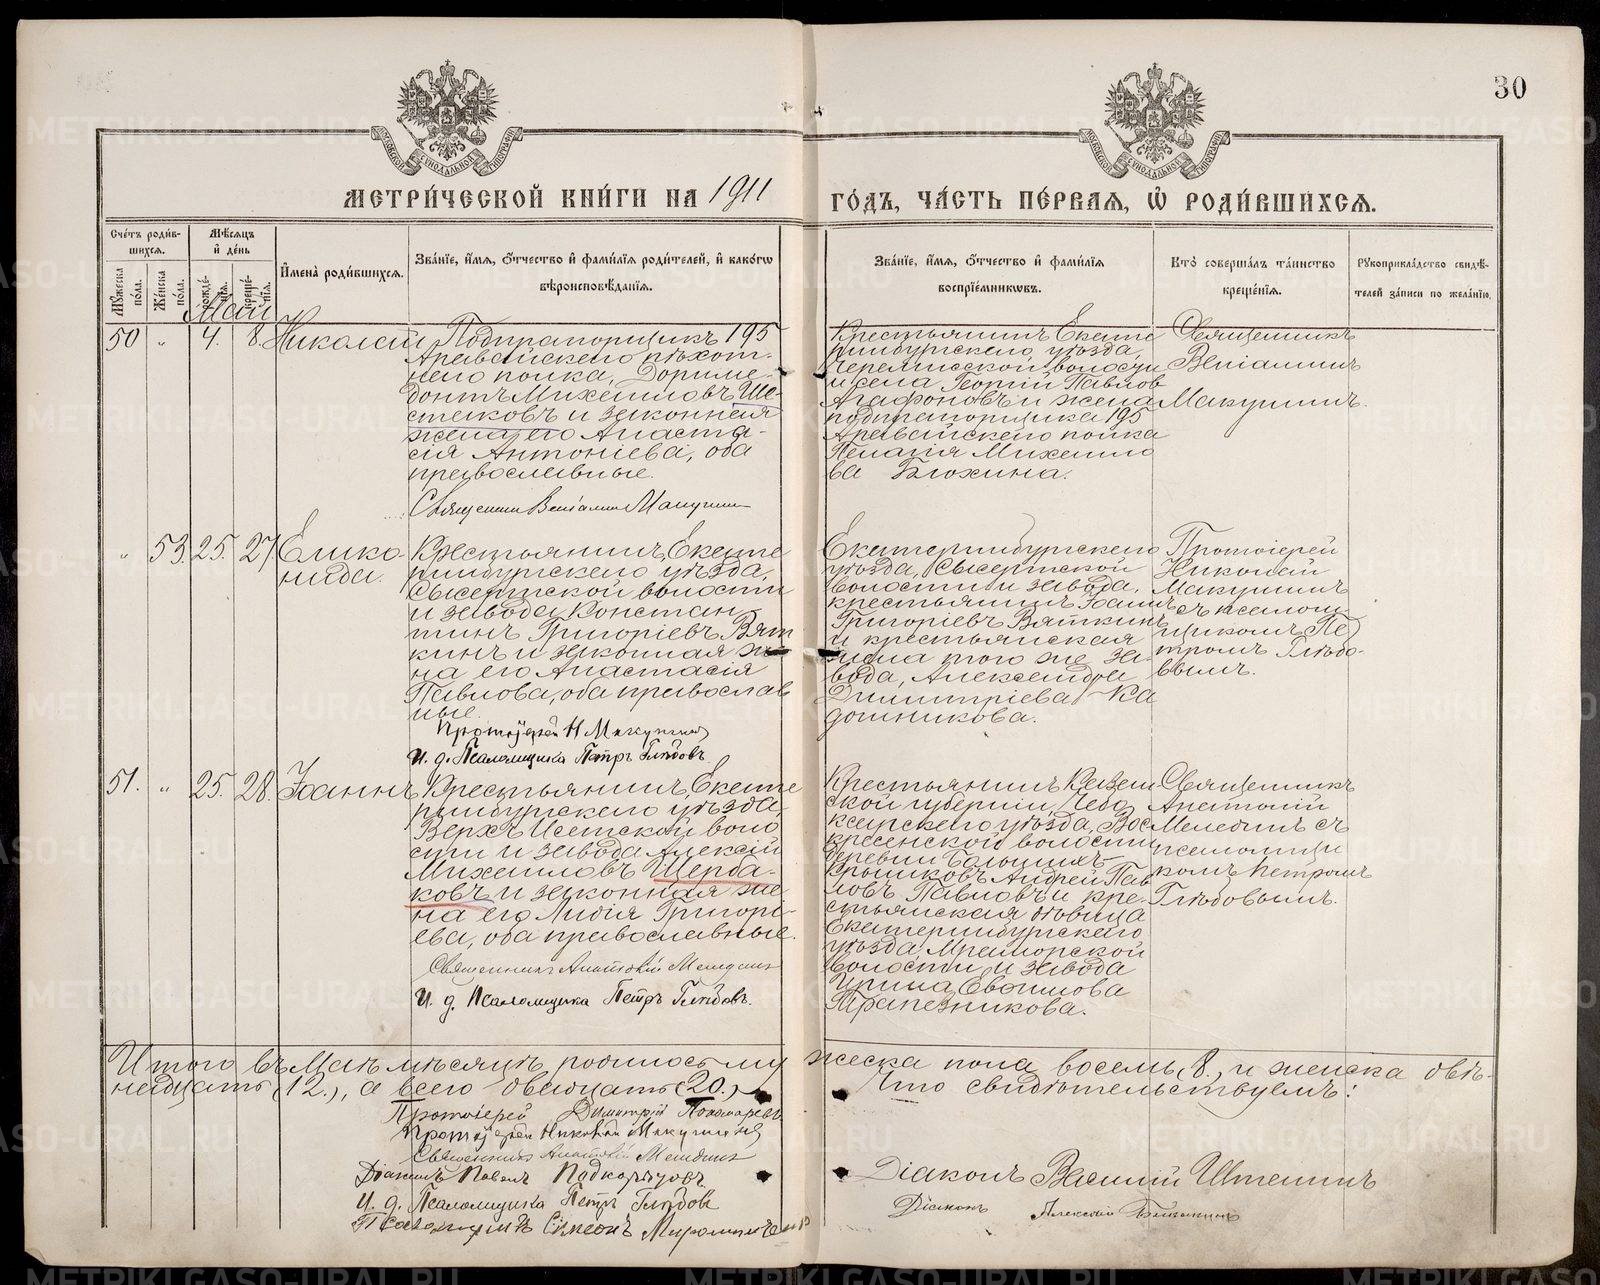 30
МЕТРИ́ЧЕСКОЙ КНИ́ГИ НА 1911 ГО́ДЪ, ЧА́СТЬ ПЕ́РВАЯ, Ѡ РОДИ́ВШИХСЯ.
Сче́тъ роди́вшихся.
Мѣ́сяцъ и де́нь
Мꙋ́жеска по́ла.
Же́нска по́ла.
рожде́нїя.
креще́нїя.
И҆мена̀ роди́вшихся.
Зва́нїе, и҆́мя, ѻ҆́тчество и҆ фами́лїя роди́телей, и҆ како́гѡ вѣроисповѣ́данїя.
Зва́нїе, и҆́мя, ѻ҆́тчество и҆ фами́лїя воспрїе́мникѡвъ.
Кто̀ соверша́лъ та́инство креще́нїя.
Рꙋкоприкла́дство свидѣ́телей за́писи по жела́нїю.
Май
50 „ 4. 8. Николай
Подпрапорщикъ 195
Аравайскаго пѣхот-
наго полка, Дориме-
донтъ Михаиловъ Ше-
стаковъ и законная
жена его Анаста-
сія Антоніева, оба
православные.
Священникъ Веніаминъ Макушинъ
Крестьянинъ Екате
ринбургскаго уѣзда,
Черемисской волости
и села Георгій Павлов
Агафоновъ и жена
подпрапорщика 195
Аравайскаго полка
Пелагія Михаило
ва Блохина.
Священникъ
Веніаминъ
Макушинъ.
„ 53. 25. 27 Елико-
нида.
Крестьянинъ Екате
ринбургскаго уѣзда,
Сысертской волости
и завода Констан
тинъ Григоріевъ Вят
кинъ и законная же
на его Анастасія
Павлова, оба православ
ные.
Протоіерей Н Макушинъ
И. д. Псаломщика Петръ Глѣбовъ
Екатеринбургскаго
уѣзда, Сысертской
волости и завода,
крестьянинъ Іоаннъ
Григоріевъ Вяткинъ
и крестьянская
жена того же за-
вода, Александра
Димитріева Ка
дошникова.
Протоіерей
Николай
Макушинъ
съ псалом-
щикомъ Пе
тромъ Глѣбо-
вымъ.
51. „ 25. 28. Іоаннъ
Крестьянинъ Екате
ринбургскаго уѣзда
Верхъ Исетской воло
сти и завода Алексій
Михаиловъ Щерба-
ковъ и законная же
на его Лидія Григорі-
ева, оба православные.
Священникъ Анатолій Мелединъ
И. д. Псаломщика Петръ Глѣбовъ.
Крестьянинъ Казан
ской губерніи, Чебо
ксарскаго уѣзда, Вос
кресенской волости
деревни Большихъ-
Крышковъ Андрей Пав
ловъ Павловъ и кре-
стьянская дѣвица
Екатеринбургскаго
уѣзда, Мраморской
волости и завода
Ирина Евфимова
Трапезникова.
Священникъ
Анатолій
Мелединъ съ
псаломщи
комъ Петромъ
Глѣбовымъ.
Итого въ Маѣ мѣсяцѣ родилось мужеска пола восемь (8.) и женска двѣ-
надцать (12.), а всего двадцать (20.) Что свидѣтельствуемъ:
Протоіерей Димитрій Пономаревъ
Протоіерей Николай Макушинъ
Священникъ Анатолій Мелединъ
Діаконъ Павелъ Подкорытовъ
И. д. Псаломщика Петръ Глѣбовъ
Псаломщикъ Симеонъ
Діаконъ Василій Штенинъ
Діаконъ Алексій